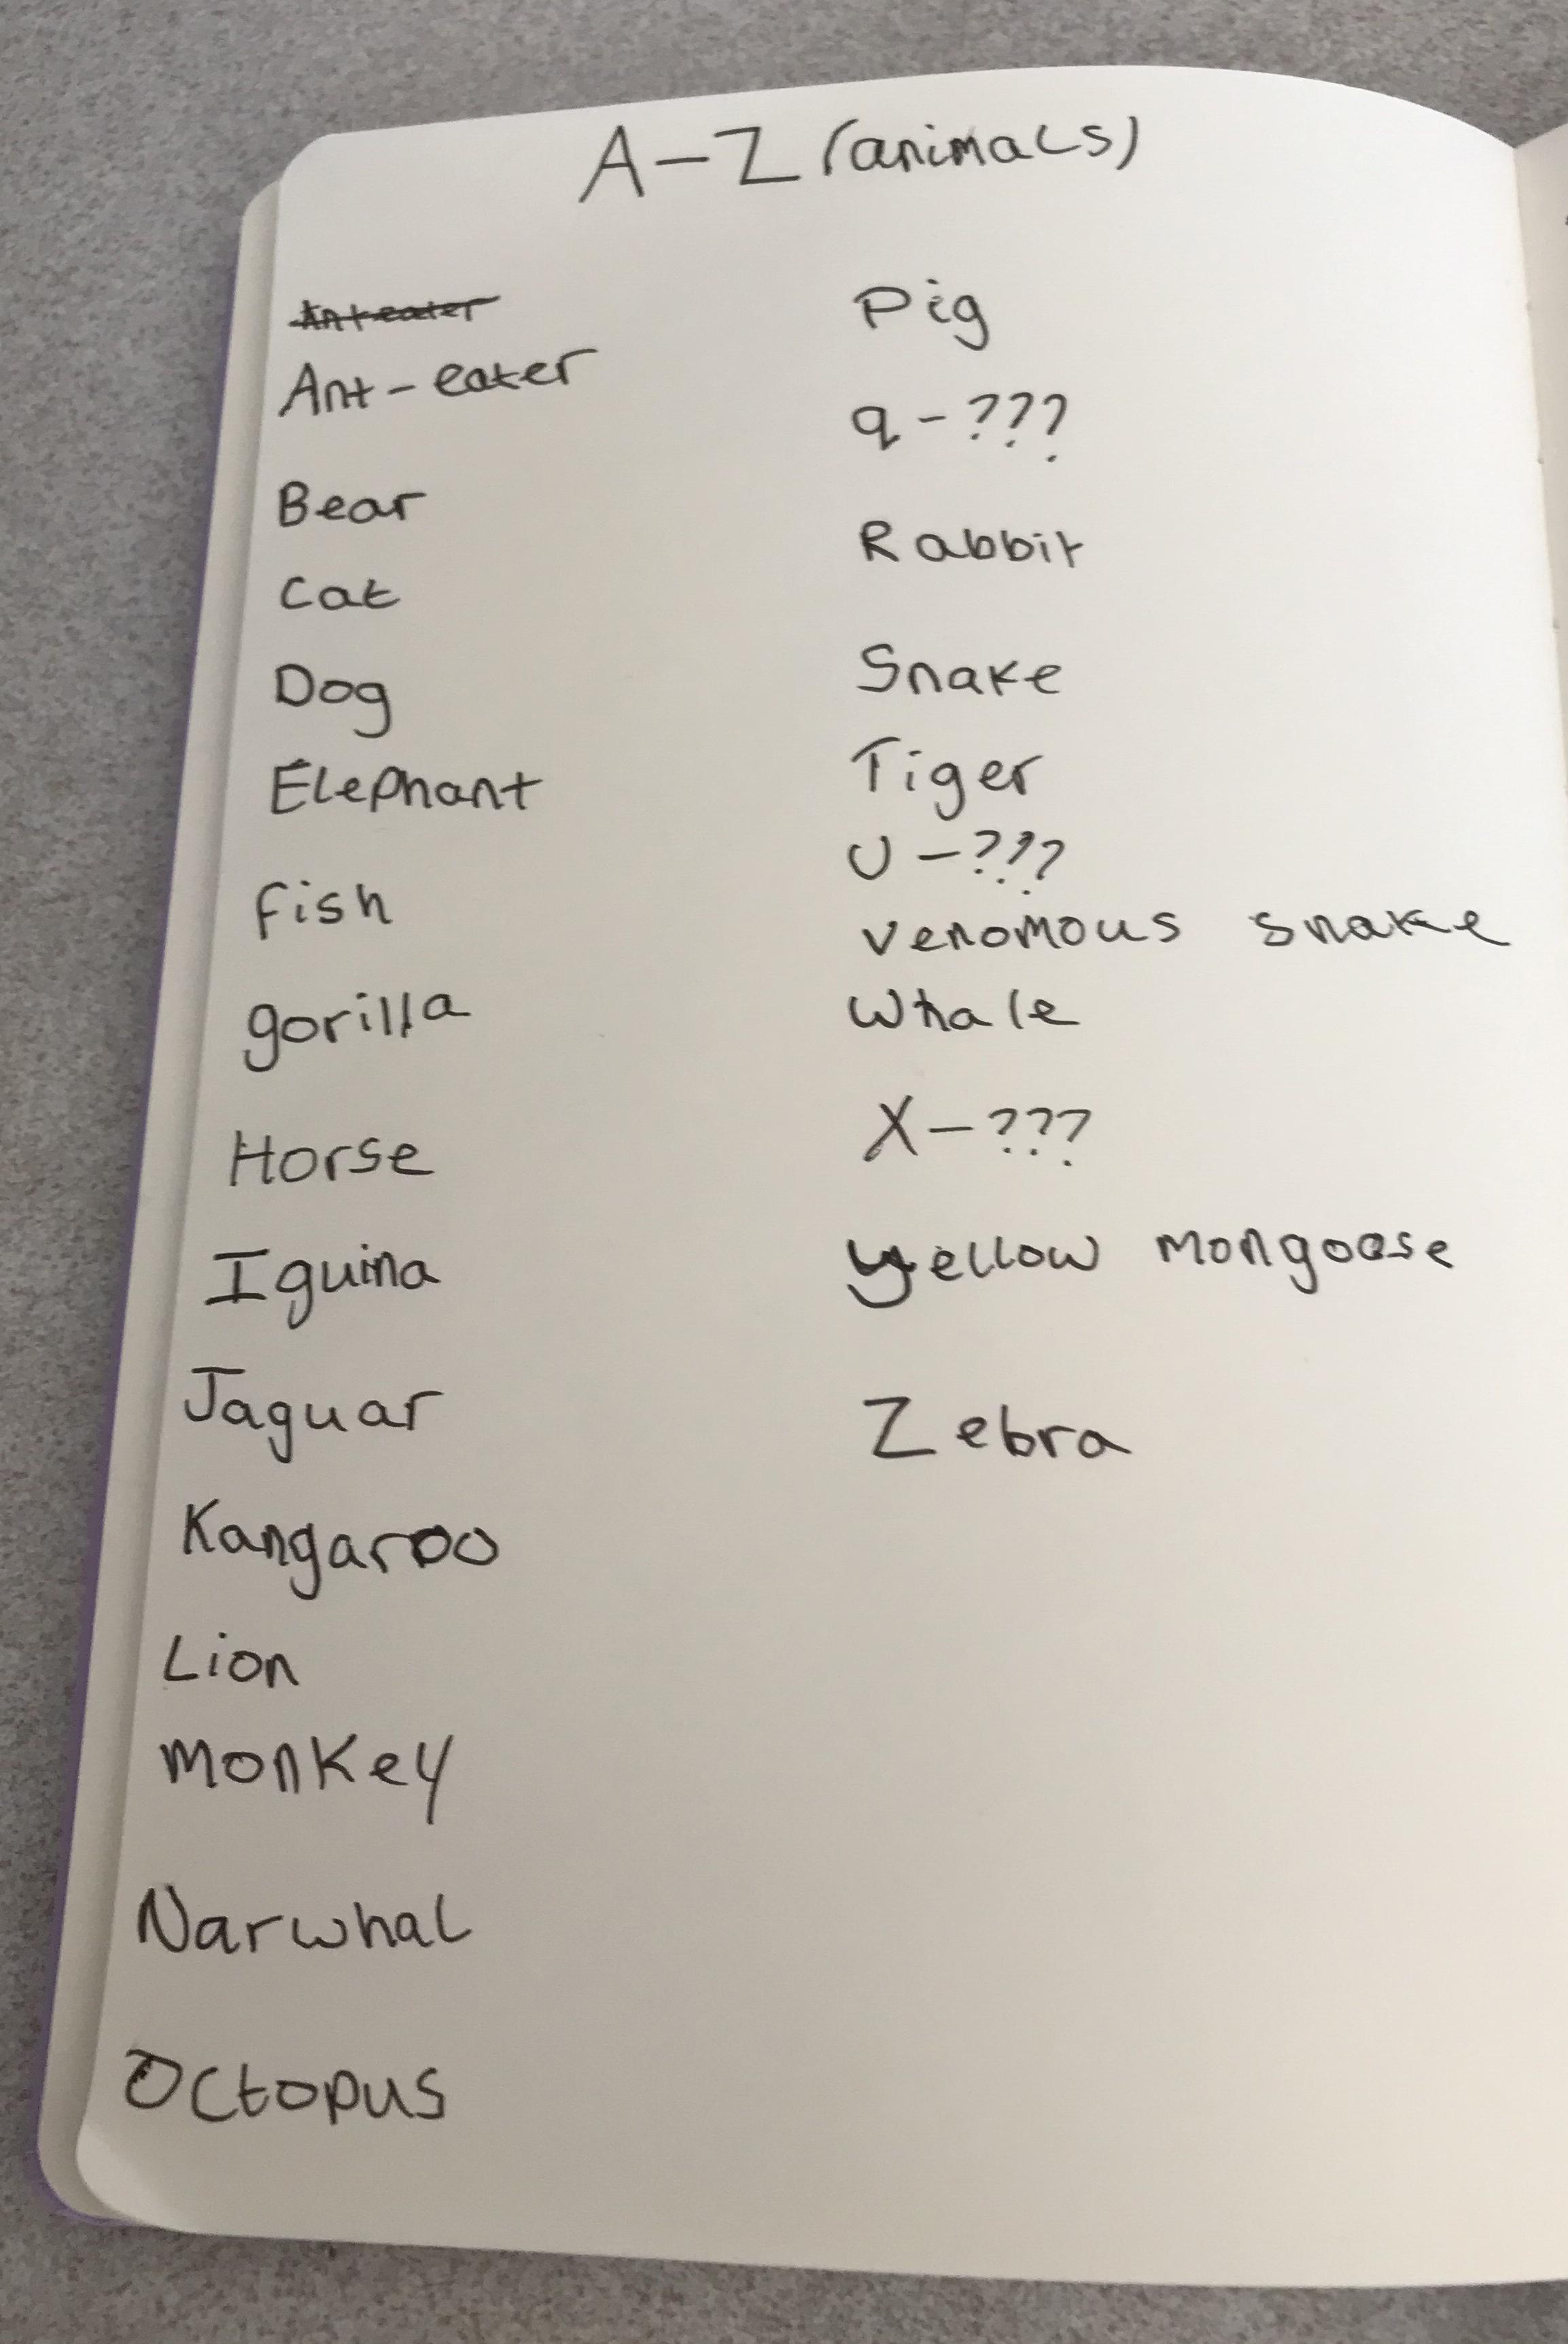 A-Z (animals)
Anteater
Ant-eater
Bear
Cat
Dog
Elephant
Fish
gorilla
Horse
Iguina
Jaguar
Kangaroo
Lion
Monkey
Narwhal
Octopus
Pig
q-???
Rabbit
Snake
Tiger
U-???
venomous snake
Whale
X-???
yellow mongoose
Zebra